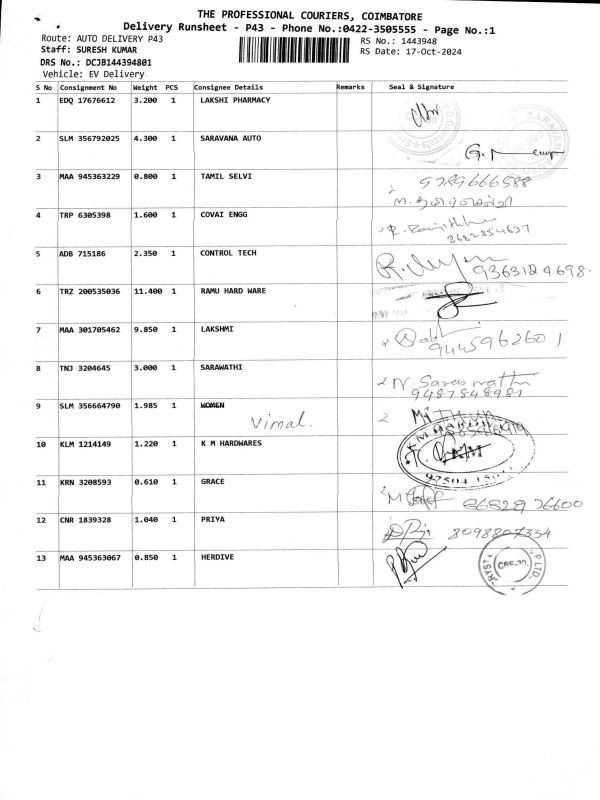 THE PROFESSIONAL COURIERS, COIMBATORE
Delivery Runsheet - P43 - Phone No.:0422-3505555 - Page No.:1
Route: AUTO DELIVERY P43
RS No.: 1443948
Staff: SURESH KUMAR
RS Date: 17-Oct-2024
DRS No.: DCJB144394801
Vehicle: EV Delivery
S No Consignment No Weight PCS Consignee Details Remarks Seal & Signature
1 EDQ 17676612 3.200 1 LAKSHI PHARMACY
2 SLM 356792025 4.300 1 SARAVANA AUTO
3 MAA 945363229 0.800 1 TAMIL SELVI 9789666588
4 TRP 6305398 1.600 1 COVAI ENGG
3682854637
5 ADB 715186 2.350 1 CONTROL TECH 9363124698.
6 TRZ 200535036 11.400 1 RAMU HARD WARE
7 MAA 301705462 9.850 1 LAKSHMI 9445962601
8 TNJ 3204645 3.000 1 SARAWATHI N. Saraswathi
9487848981
9 SLM 356664790 1.985 1 WOMEN
Vimal.
10 KLM 1214149 1.220 1 K M HARDWARES KM
11 KRN 3208593 0.610 1 GRACE 8682976600
12 CNR 1839328 1.040 1 PRIYA 8098807354
13 MAA 945363067 0.850 1 HERDIVE